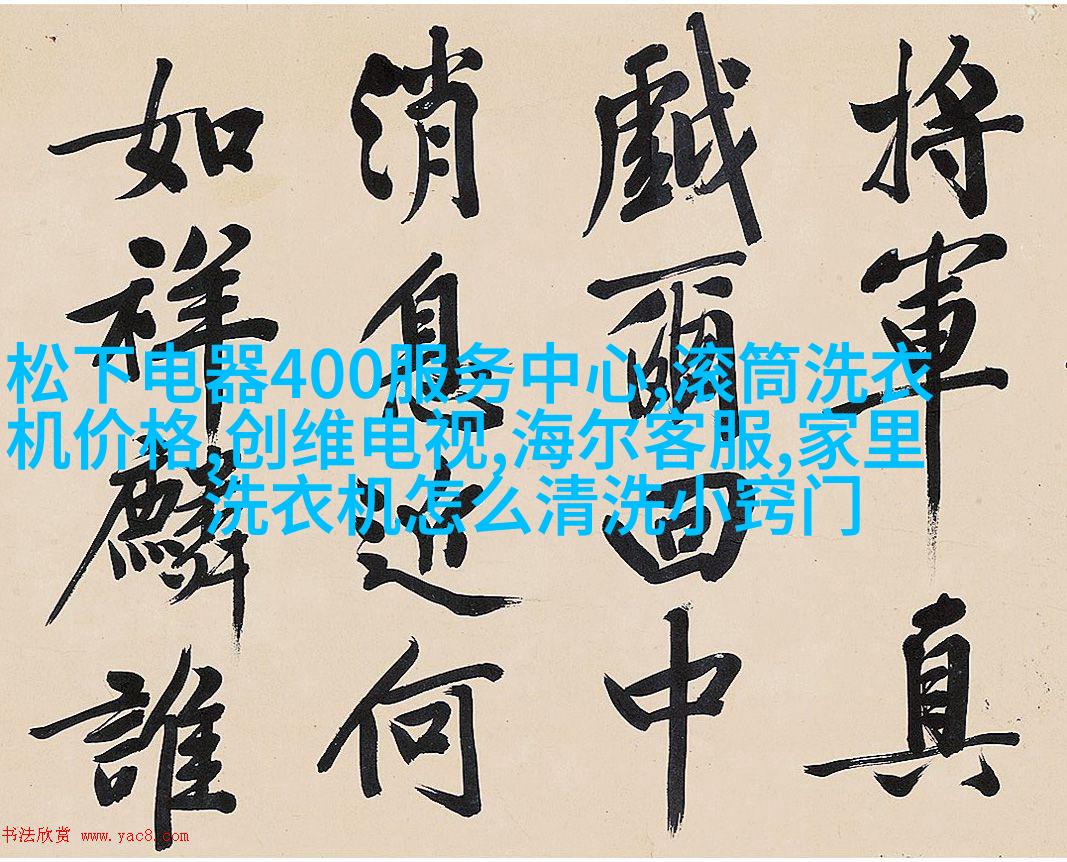 將軍真
戲爾迴中
消息近何
如祥麟誰
松下电器400服务中心,滚筒洗衣
机价格,创维电视,海尔客服,家里
洗衣机怎么清洗小窍门
书法欣赏 www.yac8.com